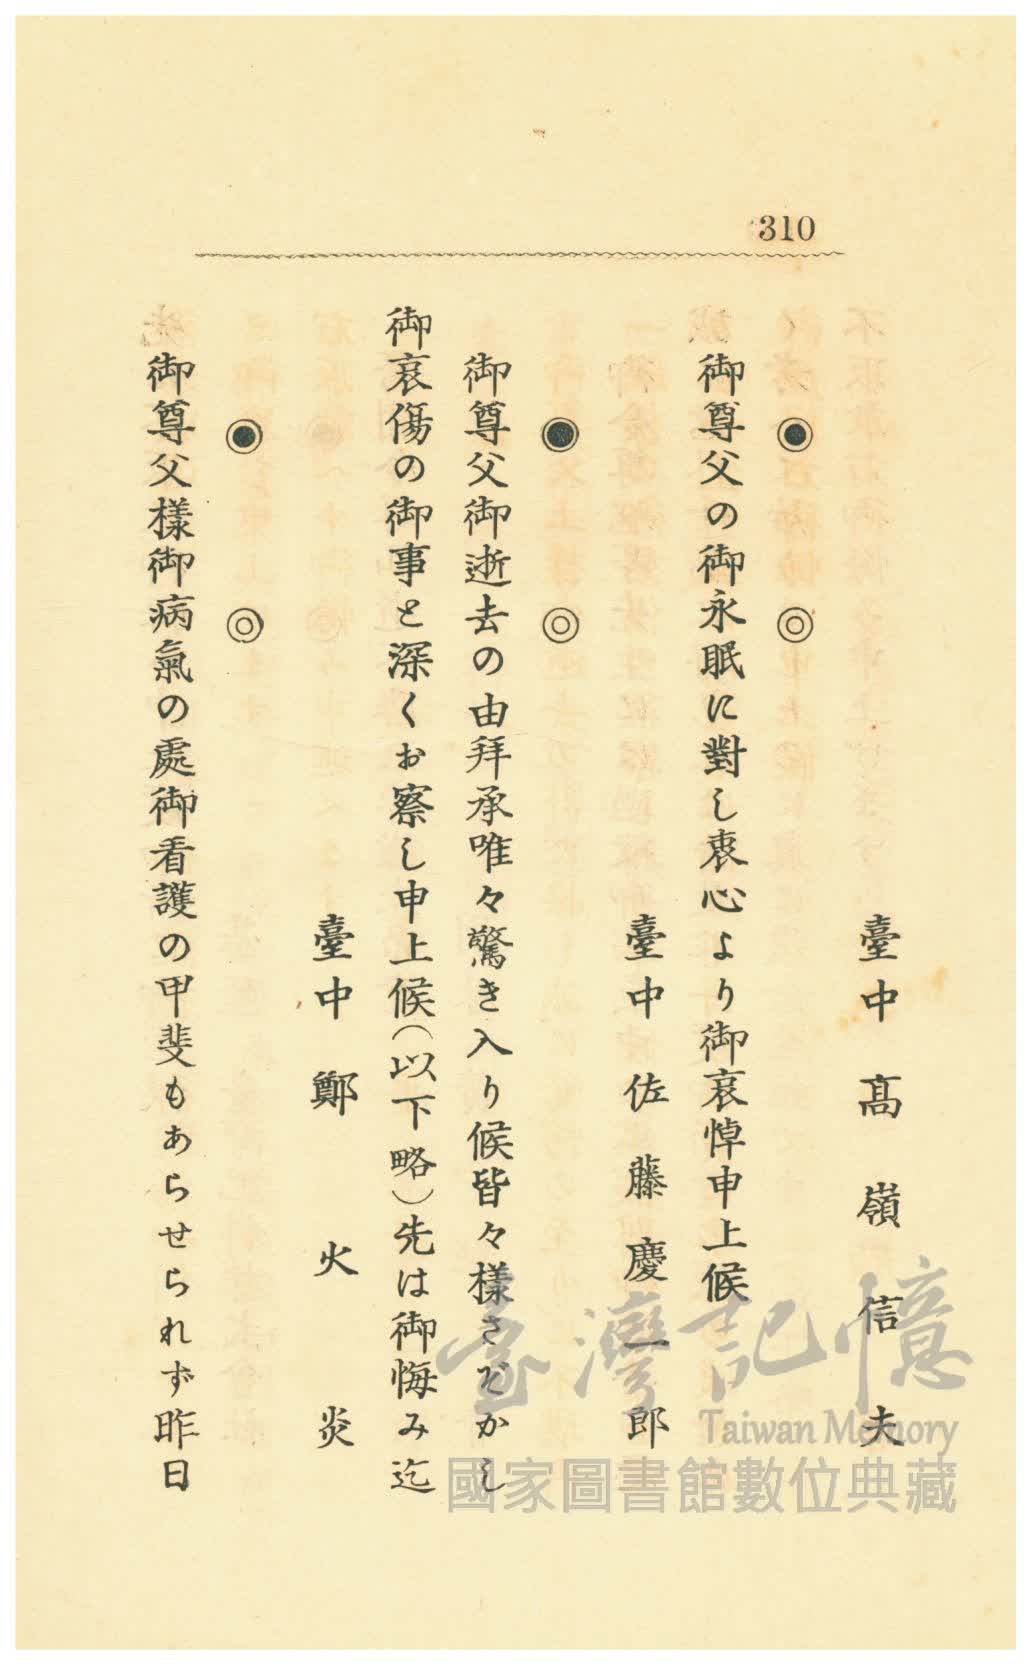 310
臺中 髙嶺信夫
◉ ◎
御尊父の御永眠に對し衷心より御哀悼申上候
臺中 佐藤慶一郎
◉ ◎
御尊父御逝去の由拜承唯々驚き入り候皆々樣さぞかし
御哀傷の御事と深くお察し申上候(以下略)先は御悔み迄
臺中 鄭火炎
◉ ◎
御尊父樣御病氣の處御看護の甲斐もあらせられず昨日
臺灣記憶
Taiwan Memory
國家圖書館數位典藏